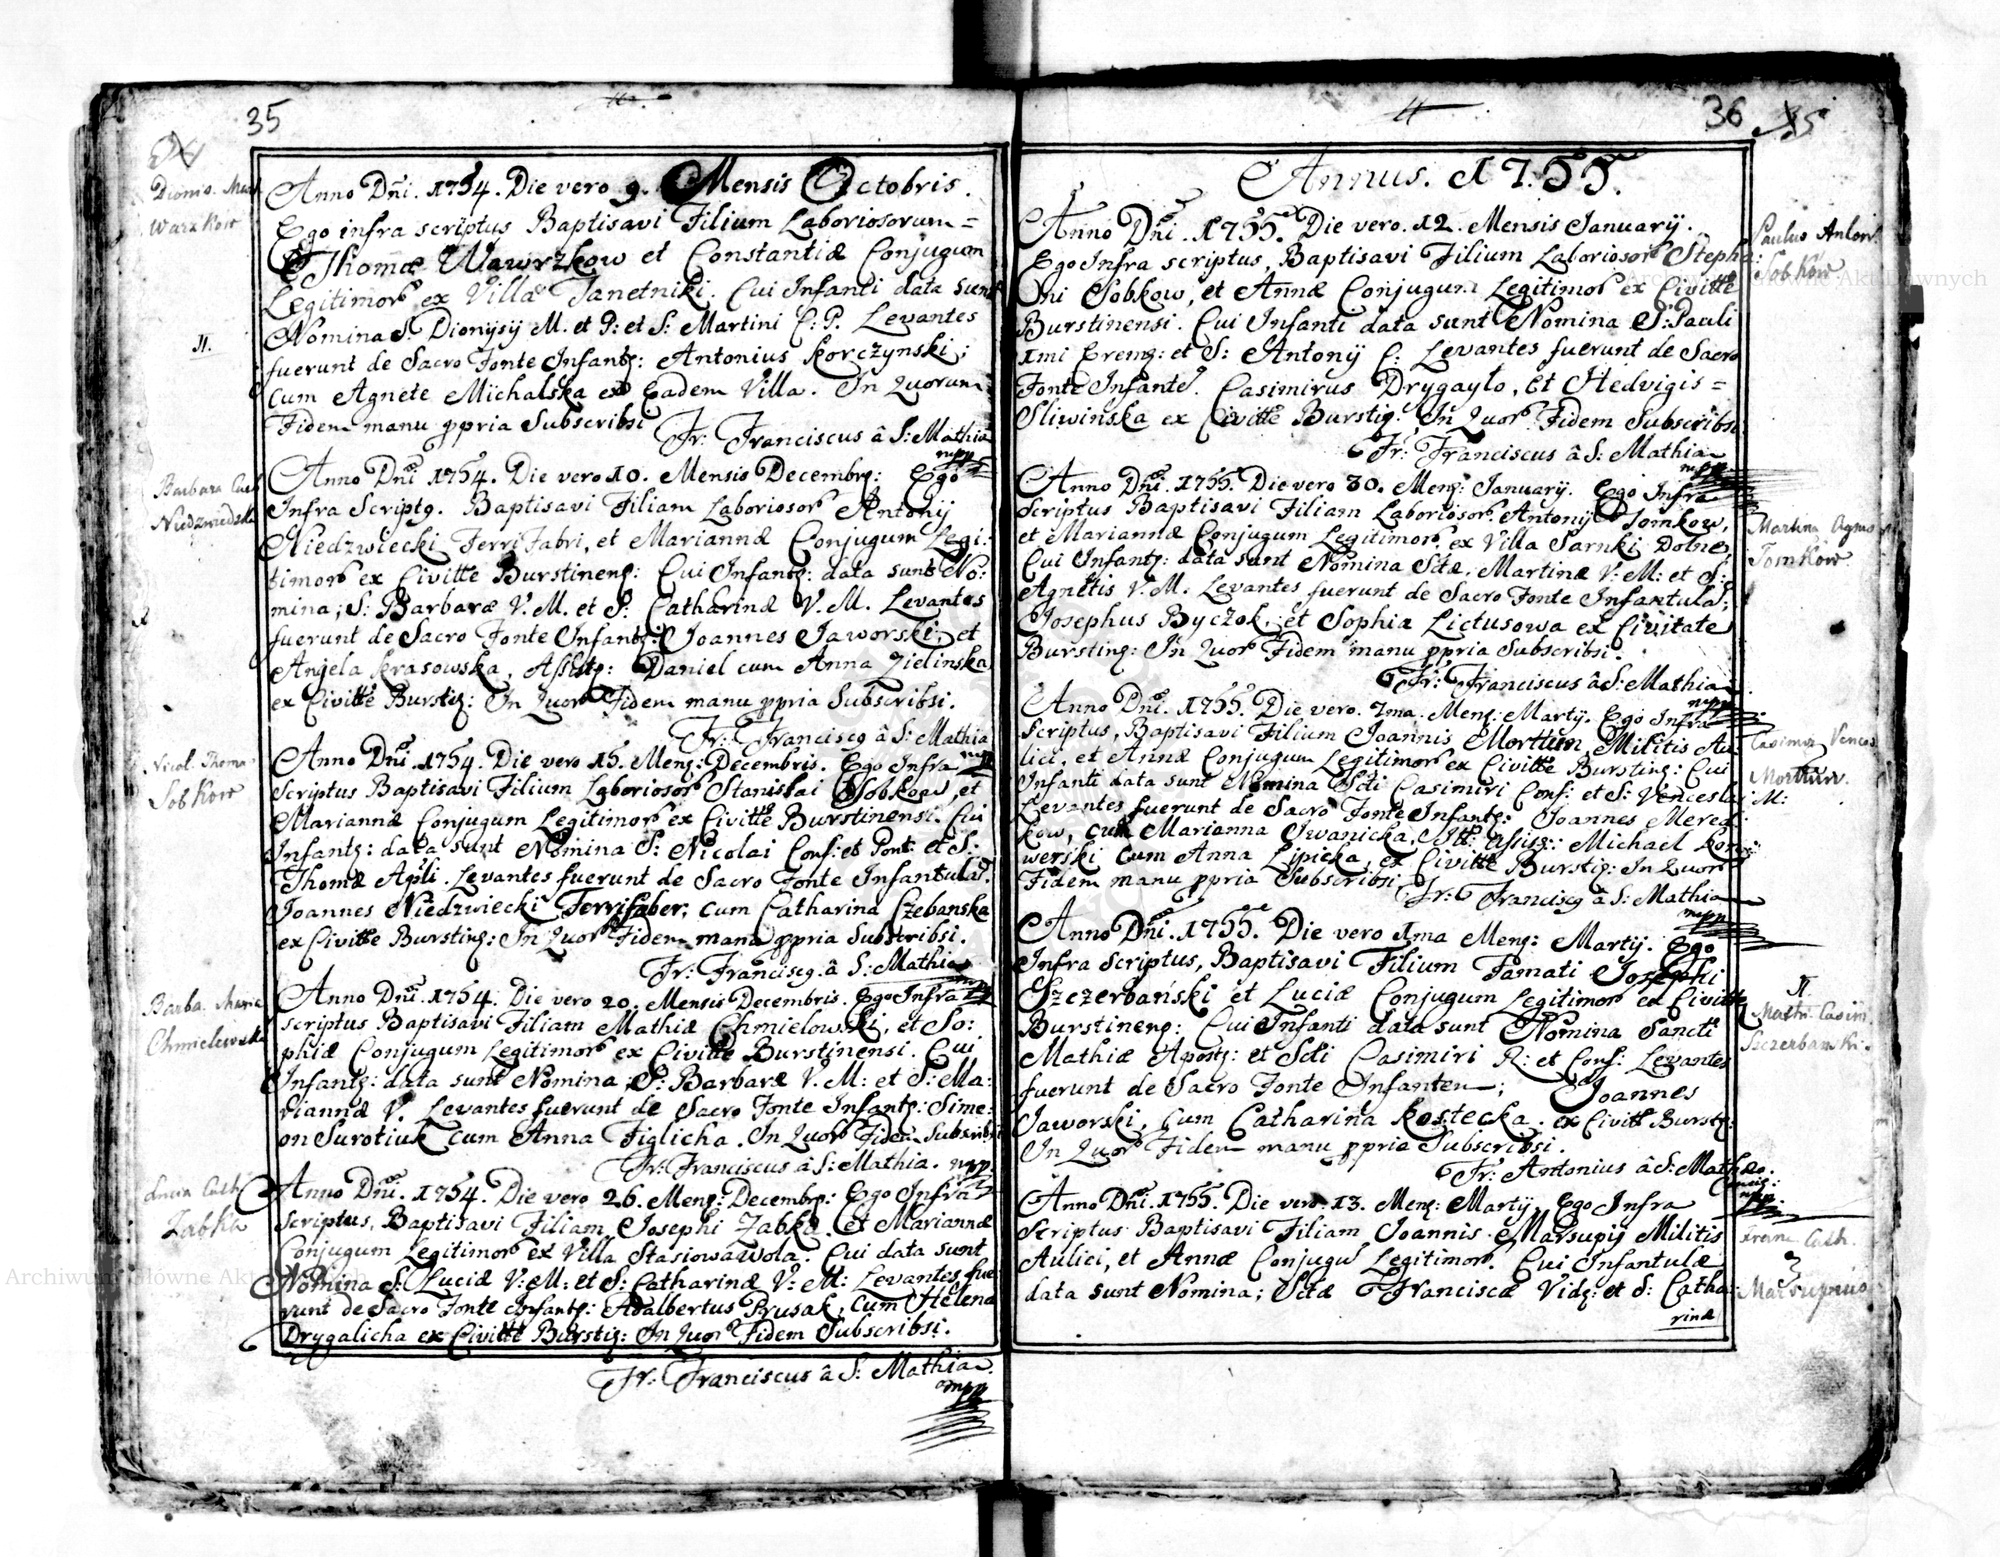 35
Dionis. Mart.
Warzkow
Anno Dñi. 1754. Die vero 9. Mensis Octobris.
Ego infra scriptus Baptisavi Filium Laboriosorum=
Thomæ Wawrzkow et Constantiæ Conjugum
Legitimor ex Villa Janetniki. Cui Infanti data sunt
Nomina S. Dionysij M. et P: et S: Martini E: P. Levantes
fuerunt de Sacro Fonte Infantę: Antonius Korczynski;
cum Agnete Michalska ex Eadem Villa. In Quorum
Fidem manu ppria Subscribsi
Fr: Franciscus â S: Mathia
mpp
Barbara Cath
Niedzwiedzka
Anno Dñi 1754. Die vero 10. Mensis Decembrę: Ego
Infra Scriptę. Baptisavi Filiam Laboriosor Antonij
Niedzwiecki Ferri Fabri, et Mariannæ Conjugum Legi:
timor ex Civitte Burstinenę: Cui Infantę: data sunt No:
mina; S: Barbaræ V. M. et S: Catharinæ V. M. Levantes
fuerunt de Sacro Fonte Infantę: Joannes Jaworski, et
Angela Krasowska; Assistę: Daniel cum Anna Zielinska
ex Civitte Burstię: In Quor Fidem manu ppria Subscribsi.
Fr: Franciscę â S: Mathia
mpp
Nicol. Thoma
Sobkow
Anno Dñi 1754. Die vero 15. Menę: Decembris. Ego Infra
scriptus Baptisavi Filium Laboriosor Stanislai Sobkow, et
Mariannæ Conjugum Legitimor ex Civitte Burstinensi. Cui
Infantę: data sunt Nomina S: Nicolai Conf: et Pont: et S:
Thomæ Apli. Levantes fuerunt de Sacro Fonte Infantulę.
Joannes Niedzwiecki Ferrifaber, cum Catharina Czebanska
ex Civitte Burstinę: In Quor Fidem manu ppria Subscribsi.
Fr: Franciscę. â S: Mathia
mpp
Barba. Maria
Chmielewska
Anno Dñi. 1754. Die vero 20. Mensis Decembris. Ego Infra
scriptus Baptisavi Filiam Mathiæ Chmielowski, et So:
phiæ Conjugum Legitimor ex Civitte Burstinensi. Cui
Infantę: data sunt Nomina; S: Barbaræ V. M: et S: Ma:
riannæ V. Levantes fuerunt de Sacro Fonte Infantę: Sime:
on Surotiuk cum Anna Figlicha. In Quor Fidem Subscribsi
Fr: Franciscus â S: Mathia. mpp.
Lucia Cath
Zabka
Anno Dñi. 1754. Die vero 26. Menę: Decembrę: Ego Infra
scriptus, Baptisavi Filiam Josephi Zabka. et Mariannæ
Conjugum Legitimor ex Villa Stasiowawola. Cui data sunt
Nomina S: Luciæ V: M: et S: Catharinæ V: M: Levantes fue
runt de Sacro Fonte Infantę: Adalbertus Prusak, cum Helena
Drygalicha ex Civitte Burstię: In Quor Fidem Subscribsi.
Fr: Franciscus â S: Mathia.
mpp
36
Annus. 1755.
Paulus Anton.
Sobkow
Anno Dñi. 1755. Die vero. 12. Mensis January.
Ego Infra scriptus, Baptisavi Filium Laboriosor Stepha:
ni Sobkow, et Annæ Conjugum Legitimor ex Civitte
Burstinensi. Cui Infanti data sunt Nomina S: Pauli
1mi Eremę: et S: Antonij E: Levantes fuerunt de Sacro
Fonte Infante. Casimirus Drygayło, et Hedvigis=
Sliwinska ex Civitte Burstię: In Quor Fidem Subscribsi
Fr: Franciscus â S: Mathia
mpp
Martina Agnes
Tomkow
Anno Dñi. 1755. Die vero 30. Menę: January. Ego Infra
scriptus Baptisavi Filiam Laboriosor. Antonij Tomkow,
et Mariannæ Conjugum Legitimor, ex Villa Sarnki Dolne,
Cui Infantę: data sunt Nomina Sctæ. Martinæ V: M: et S:
Agnetis V. M. Levantes fuerunt de Sacro Fonte Infantulæ;
Josephus Byczok, et Sophia Lictusowa ex Civitate
Burstinę: In Quor Fidem manu ppria Subscribsi.
Fr: Franciscus â S: Mathia
mpp
Casimir Vences
Morttum.
Anno Dñi. 1755. Die vero. 1ma. Menę: Martij. Ego Infra
scriptus, Baptisavi Filium Joannis Morttum, Militis Au:
lici, et Annæ Conjugum Legitimor ex Civitte Burstinę: Cui
Infanti data sunt Nomina Scti Casimiri Conf: et S: Venceslai M:
Levantes fuerunt de Sacro Fonte Infantę: Joannes Mered:
kow, cum Marianna Iwanicka, Itt: Assisę: Michael Kono:
werski cum Anna Lipicka, ex Civitte Burstię: In Quor
Fidem manu ppria Subscribsi
Fr: Franciscę â S: Mathia
mpp
Math: Casim.
Szczerbanski.
Anno Dñi. 1755. Die vero 1ma Menę: Martij. Ego
Infra scriptus, Baptisavi Filium Famati Josephi
Szczerbański et Luciæ Conjugum Legitimor ex Civitte
Burstinenę: Cui Infanti data sunt Nomina Sancti
Mathiæ Apostę: et Scti Casimiri R: et Conf: Levantes
fuerunt de Sacro Fonte Infantem; Joannes
Jaworski, cum Catharina Kostecka. ex Civitt Burstę:
In Quor Fidem manu ppria Subscribsi.
Fr: Antonius â S: Mathæo.
mpp.
Franc. Cath.
Marsupius
Anno Dñi. 1755. Die vero. 13. Menę: Martij. Ego Infra
scriptus Baptisavi Filiam Joannis Marsupij Militis
Aulici, et Annæ Conjugu Legitimor. Cui Infantulæ
data sunt Nomina; Sctæ Franciscæ Vidę: et S: Catha:
rinæ
Archiwum Główne Akt Dawnych